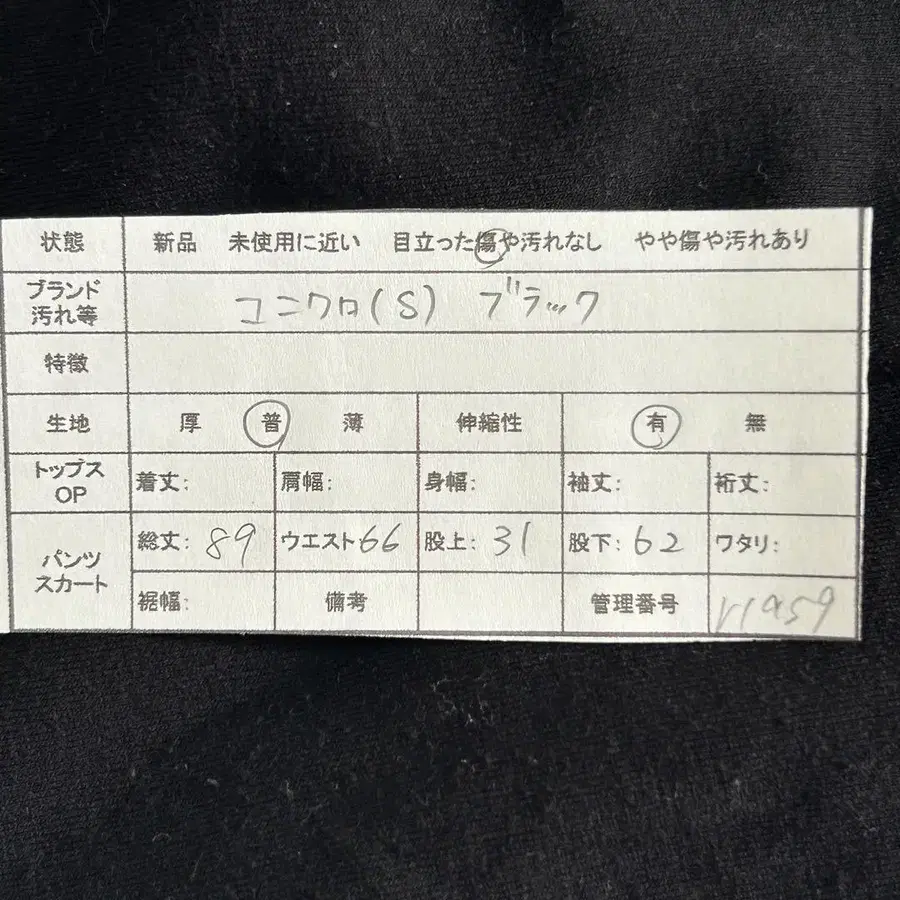 状態 新品 未使用に近い 目立った傷や汚れなし やや傷や汚れあり
ブランド
汚れ等 ユニクロ(S) ブラック
特徴
生地 厚 普 薄 伸縮性 有 無
トップス
OP 着丈: 肩幅: 身幅: 袖丈: 裄丈:
パンツ
スカート 総丈: 89 ウエスト66 股上: 31 股下: 62 ワタリ:
裾幅: 備考 管理番号